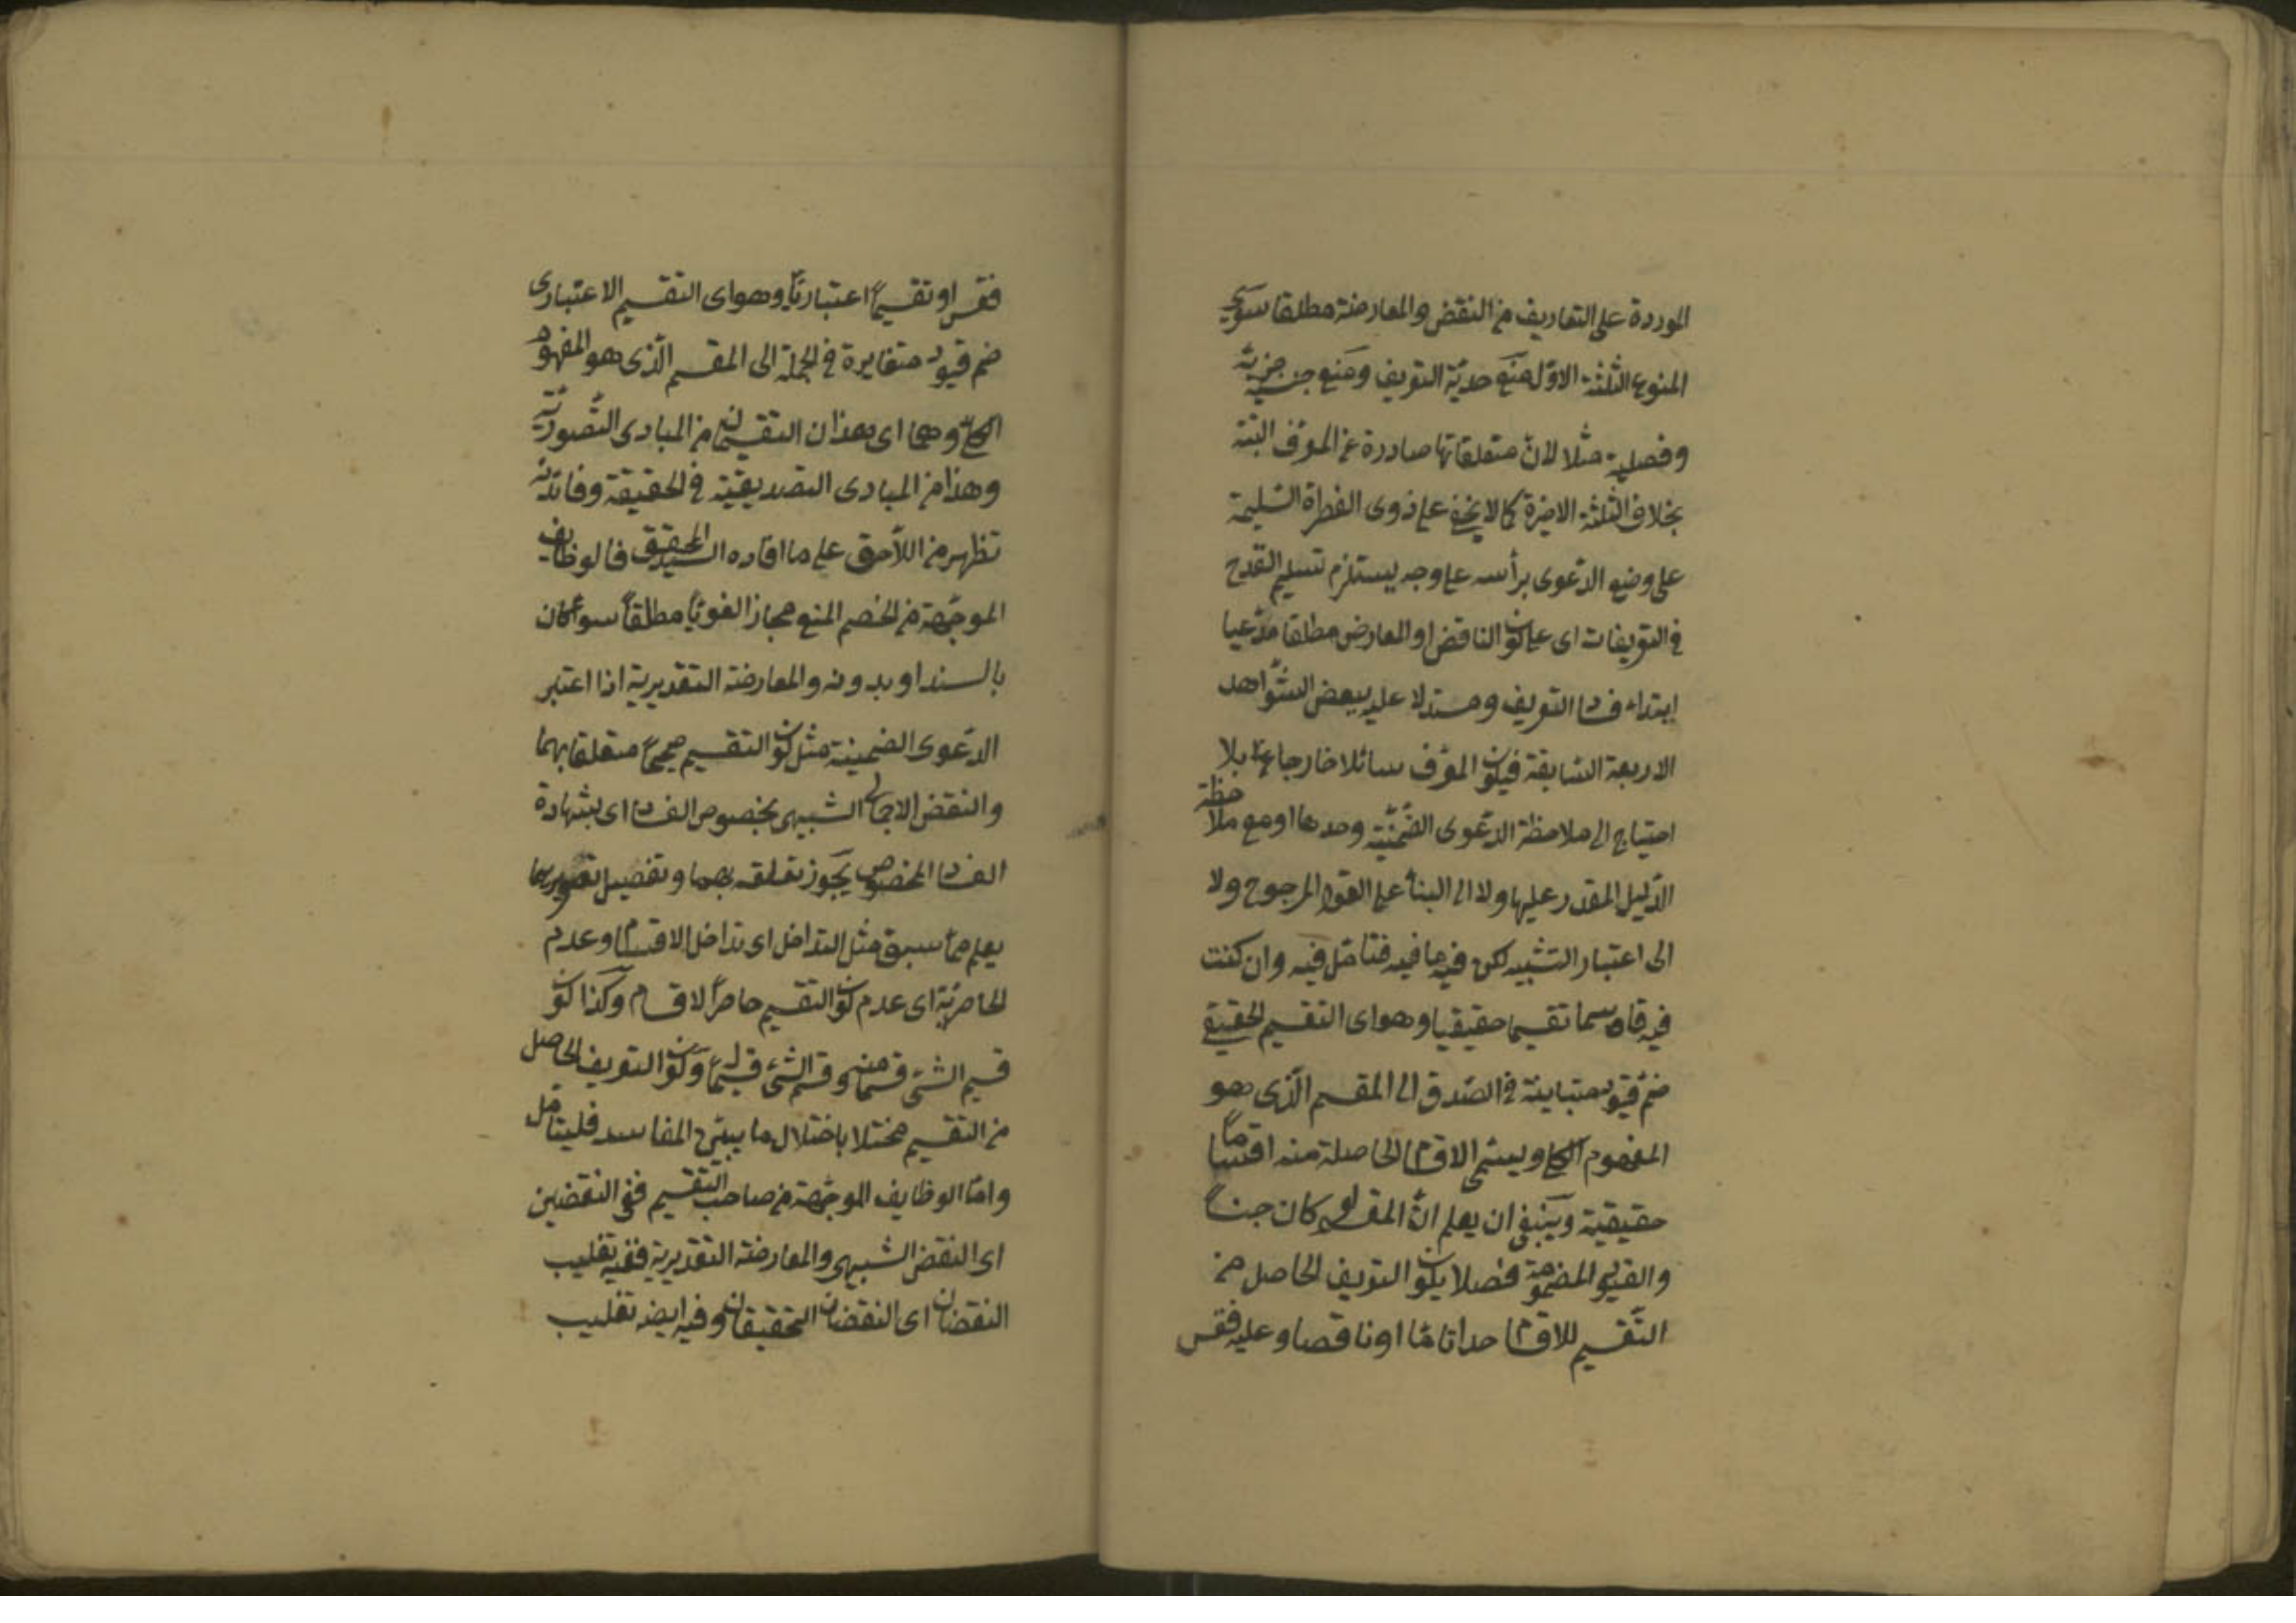 الموردة على التعاريف من النقض والمعارضة مطلقا سوى
المنوع الثلثة الاول منع حدية التعريف ومنع جنسية جزئه
وفصلية مثلا لان متعلقاتها صادرة عن المعرف البتة
بخلاف الثلثة الاخيرة كما لا يخفى على ذوى الفطرة السليمة
على وضع الدعوى برأسه على وجه يستلزم تسليم القدح
فى التعريفات اى على كون الناقض او المعارض مطلقا مدعيا
ابتداء فساد التعريف ومستدلا عليه ببعض الشواهد
الاربعة السابقة فيكون المعرف سائلا خارجا عنه بلا
احتياج الى ملاحظة الدعوى الضمنية وحدها او مع ملاحظة
الدليل المقدر عليها ولا الى البناء على القول المرجوح ولا
الى اعتبار التشبيه لكن فيه ما فيه فتأمل فيه وان كنت
فيه قاسما تقسيما حقيقيا وهو اى التقسيم الحقيقى
ضم قيود متباينة فى الصدق الى المقسم الذى هو
المفهوم الكلى ويسمى الاقسام الحاصلة منه اقساماً
حقيقية وينبغى ان يعلم ان المقسم لو كان جنساً
والقيود المضمومة فصلا يكون التعريف الحاصل من
التقسيم للاقسام حدا تاما او ناقصا وعليه فقس
فقس او تقسيماً اعتبارياً وهو اى التقسيم الاعتبارى
ضم قيود متغايرة فى الجملة الى المقسم الذى هو المفهوم
الكلى وهما اى هذان التقسيمان من المبادى التصورية
وهذا من المبادى التصديقية فى الحقيقة وفائدته
تظهر من اللاحق على ما افاده السيد المحقق فالوظايف
الموجهة من الخصم المنع مجازا لغوياً مطلقاً سواء كان
بالسند او بدونه والمعارضة التقديرية اذا اعتبر
الدعوى الضمنية مثل كون التقسيم صحيحاً متعلقا بهما
والنقض الاجمالى الشبيهى بخصوص الفساد اى بشهادة
الفساد المخصوص يجوز تعلقه بهما وتفصيل تصويرهما
يعلم مما سبق مثل التداخل اى تداخل الاقسام او عدم
الحاصرية اى عدم كون التقسيم حاصراً لاقسام وكذا كون
قسيم الشئ قسما منه وقسم الشئ قسيماً له وكون التعريف الحاصل
من التقسيم مختلا باختلال ما يبتنى المفاسد فليتأمل
واما الوظايف الموجهة من صاحب التقسيم ففى النقضين
اى النقض الشبيهى والمعارضة التقديرية ففيه تغليب
النقضان اى النقضان التحقيقان وفيه ايضه تغليب